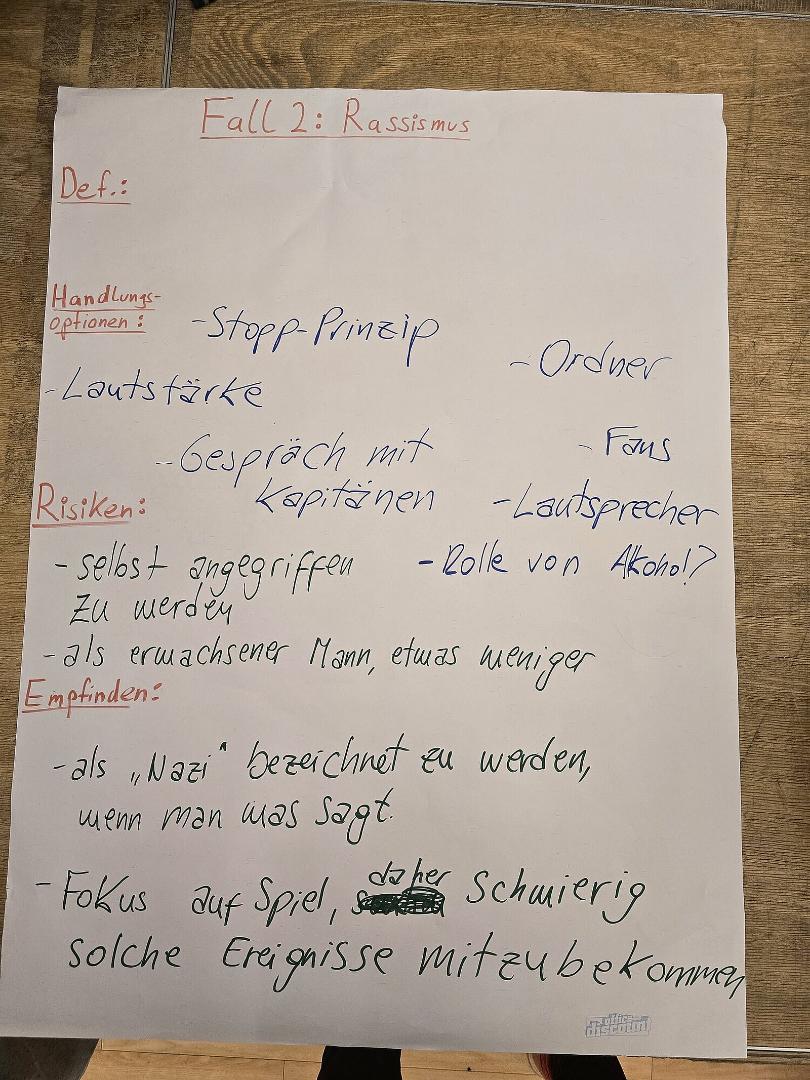 Fall 2: Rassismus
Def.:
Handlungs-
optionen:
- Stopp-Prinzip
- Ordner
- Lautstärke
- Gespräch mit
Kapitänen
- Fans
- Lautsprecher
- Rolle von Alkohol?
Risiken:
- selbst angegriffen
zu werden
- als erwachsener Mann, etwas weniger
Empfinden:
- als „Nazi“ bezeichnet zu werden,
wenn man was sagt.
- Fokus auf Spiel, daher Schwierig
solche Ereignisse mitzubekommen
office
discount